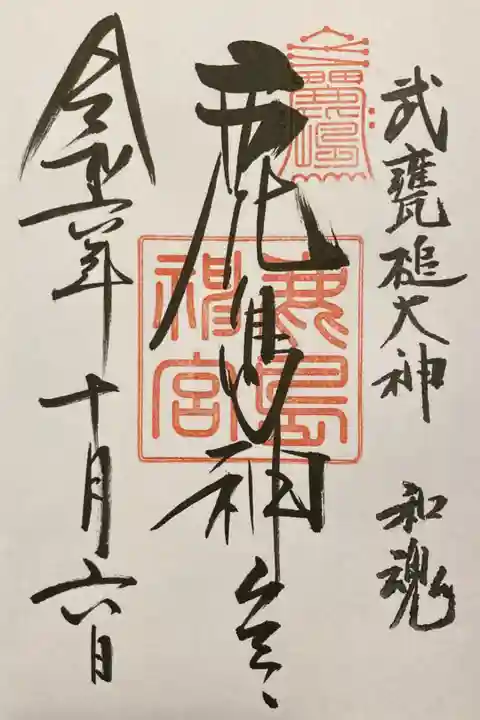 武甕槌大神 和魂
鹿島神宮
鹿島神宮
令和六年十月六日